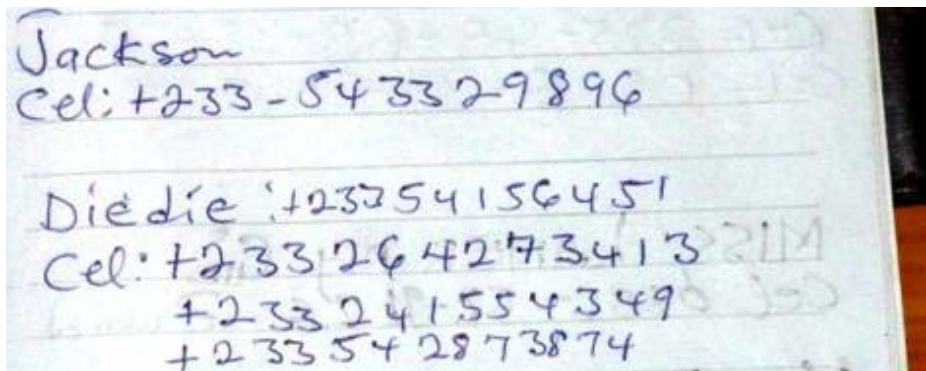 Jackson
Cel: +233-543329896
Diedie: +23354156451
Cel: +233264273413
+233241554349
+233542873874